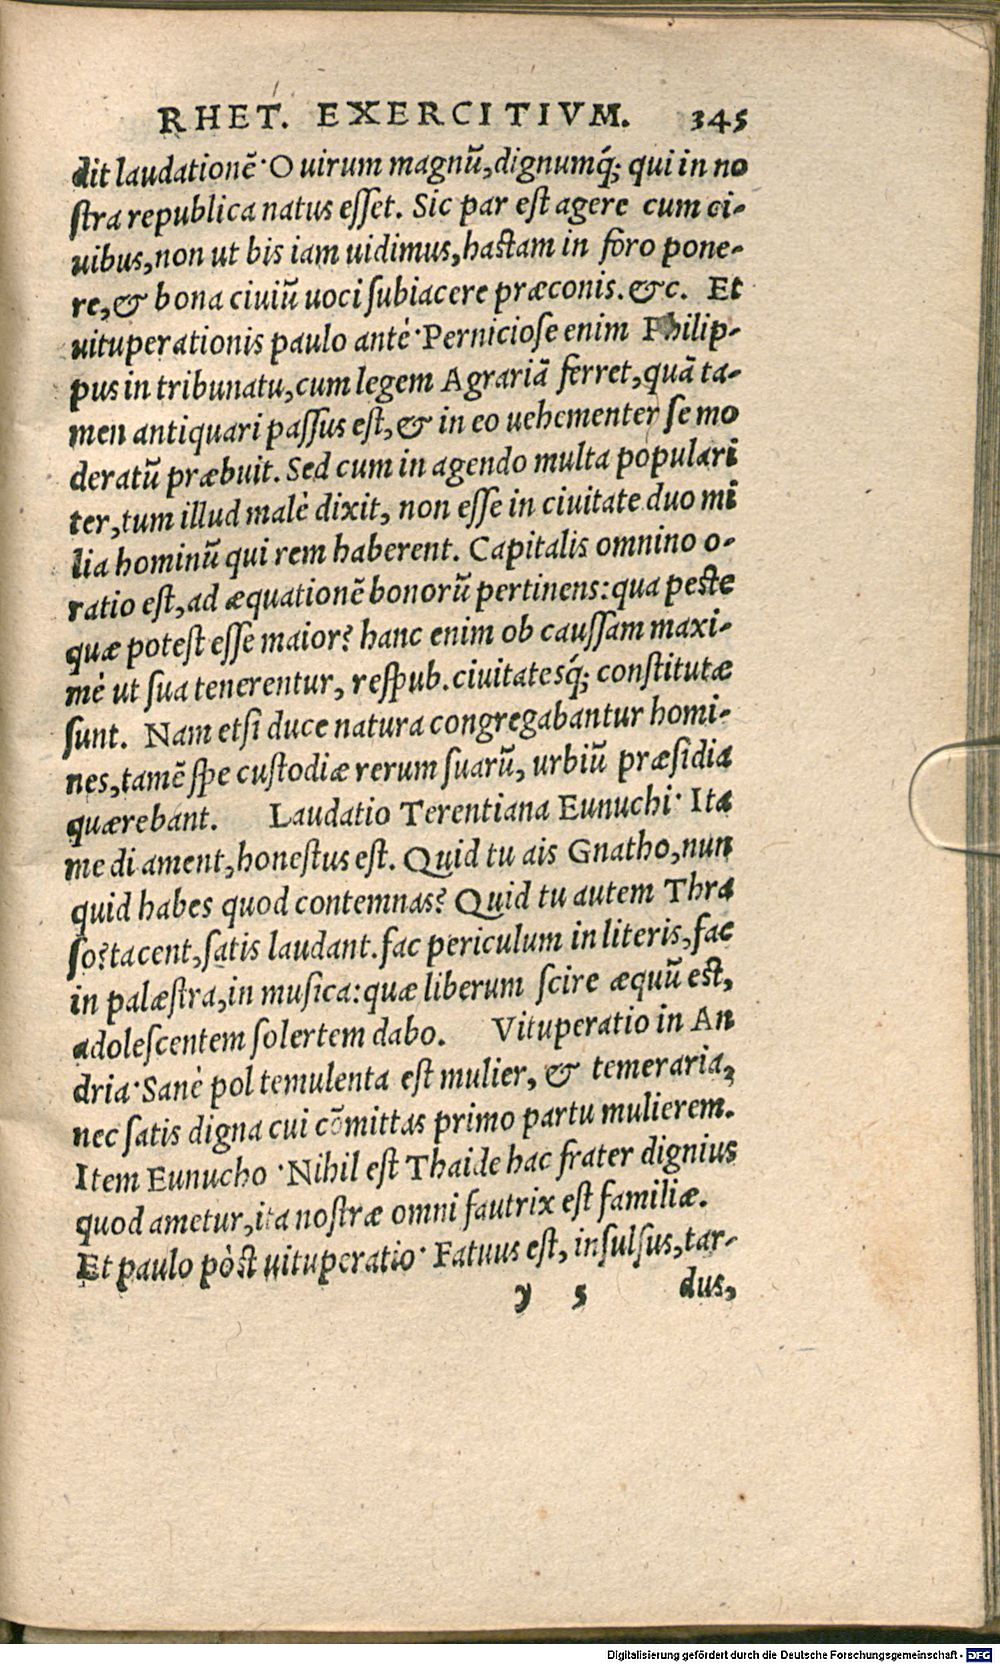 RHET. EXERCITIVM. 345
dit laudationē· O uirum magnū, dignumq́; qui in no
stra republica natus esset. Sic par est agere cum ci-
uibus, non ut bis iam uidimus, hastam in foro pone-
re, & bona ciuiū uoci subiacere præconis. &c. Et
uituperationis paulo antè· Perniciose enim Philip-
pus in tribunatu, cum legem Agrariā ferret, quā ta-
men antiquari passus est, & in eo uehementer se mo
deratū præbuit. Sed cum in agendo multa populari
ter, tum illud malè dixit, non esse in ciuitate duo mi
lia hominū qui rem haberent. Capitalis omnino o-
ratio est, ad æquationē bonorū pertinens: qua peste
quæ potest esse maior? hanc enim ob caussam maxi-
mè ut sua tenerentur, respub. ciuitatesq́; constitutæ
sunt. Nam etsi duce natura congregabantur homi-
nes, tamē spe custodiæ rerum suarū, urbiū præsidia
quærebant. Laudatio Terentiana Eunuchi· Ita
me di ament, honestus est. Quid tu ais Gnatho, nun
quid habes quod contemnas? Quid tu autem Thra
so? tacent, satis laudant. fac periculum in literis, fac
in palæstra, in musica: quæ liberum scire æquū est,
adolescentem solertem dabo. Vituperatio in An
dria· Sanè pol temulenta est mulier, & temeraria,
nec satis digna cui cōmittas primo partu mulierem.
Item Eunucho · Nihil est Thaide hac frater dignius
quod ametur, ita nostræ omni fautrix est familiæ.
Et paulo pòst uituperatio· Fatuus est, insulsus, tar-
y 5 dus,
Digitalisierung gefördert durch die Deutsche Forschungsgemeinschaft - DFG